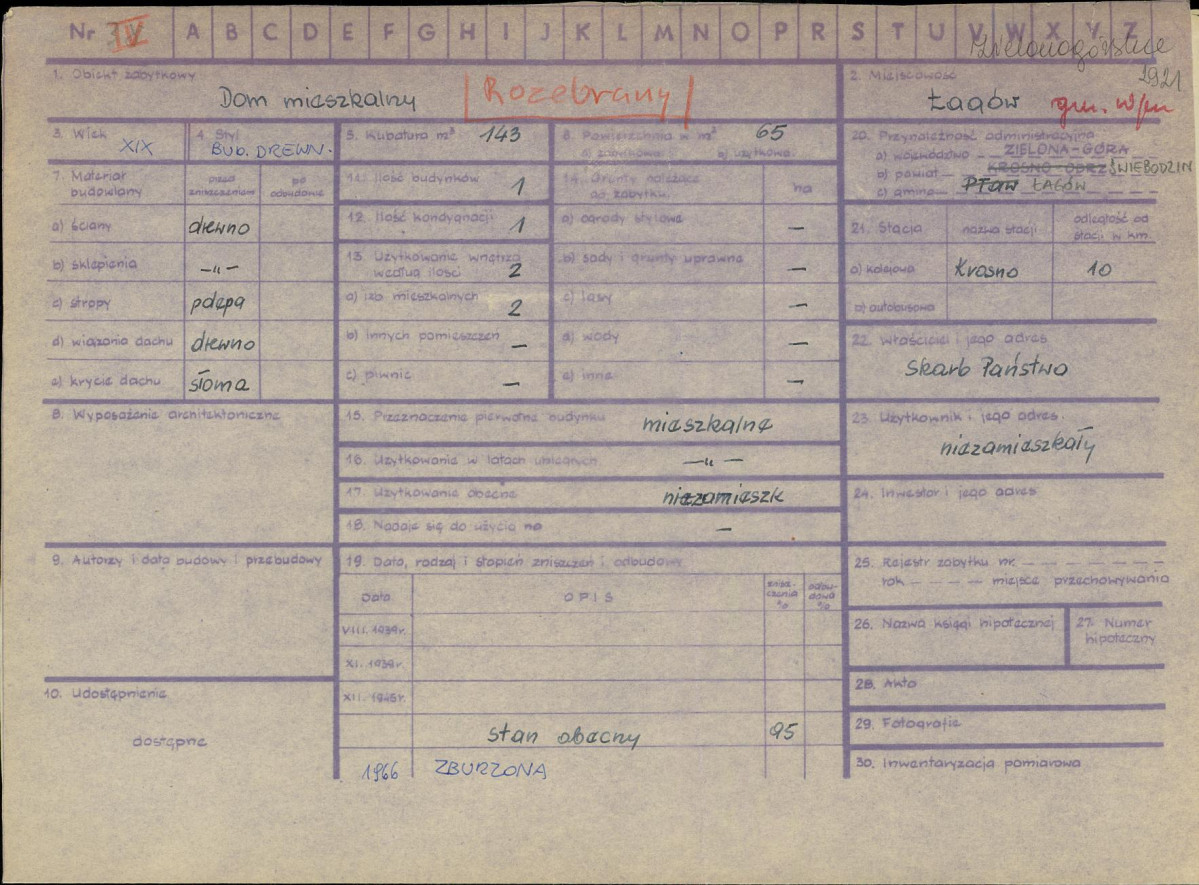 Nr IV A B C D E F G H I J K L M N O P R S T U V W X Y Z
Zielonogórskie
1921
1. Obiekt zabytkowy
Dom mieszkalny Rozebrany
2. Miejscowość
Łagów gm. w/m
3. Wiek
XIX
4. Styl
BUD. DREWN.
5. Kubatura m³ 143
6. Powierzchnia w m² 65
a) zabytkowa b) użytkowa
7. Materiał budowlany
przed zniszczeniem
po odbudowie
a) ściany drewno
b) sklepienia -"-
c) stropy
d) wiązania dachu drewno
e) krycie dachu słoma
8. Wyposażenie architektoniczne
9. Autorzy i data budowy i przebudowy
10. Udostępnienie
dostępne
11. Ilość budynków 1
12. Ilość kondygnacji 1
13. Użytkowanie wnętrza według ilości 2
a) izb mieszkalnych 2
b) innych pomieszczeń –
c) piwnic –
14. Grunty należące do zabytku
ha
a) ogrody stylowe –
b) sady i grunty uprawne –
c) lasy –
d) wody –
e) inne –
15. Przeznaczenie pierwotne budynku mieszkalne
16. Użytkowanie w latach ubiegłych -"-
17. Użytkowanie obecne niezamieszk
18. Nadaje się do użycia na –
19. Data, rodzaj i stopień zniszczeń i odbudowy
Data OPIS zniszczenia % odbudowa %
VIII. 1939 r.
XI. 1939 r.
XII. 1945 r.
stan obecny 95
1966 ZBURZONA
20. Przynależność administracyjna
a) województwo – ZIELONA-GÓRA
b) powiat – KROSNO-ODRZ ŚWIEBODZIN
c) gmina – ŁAGÓW
21. Stacja
nazwa stacji
odległość od stacji w km.
a) kolejowa Krosno 10
b) autobusowa
22. Właściciel i jego adres
Skarb Państwa
23. Użytkownik i jego adres
niezamieszkały
24. Inwestor i jego adres
25. Rejestr zabytku nr. – – – – – –
rok – – – – miejsce przechowywania
26. Nazwa księgi hipotecznej
27. Numer hipoteczny
28. Akta
29. Fotografie
30. Inwentaryzacja pomiarowa